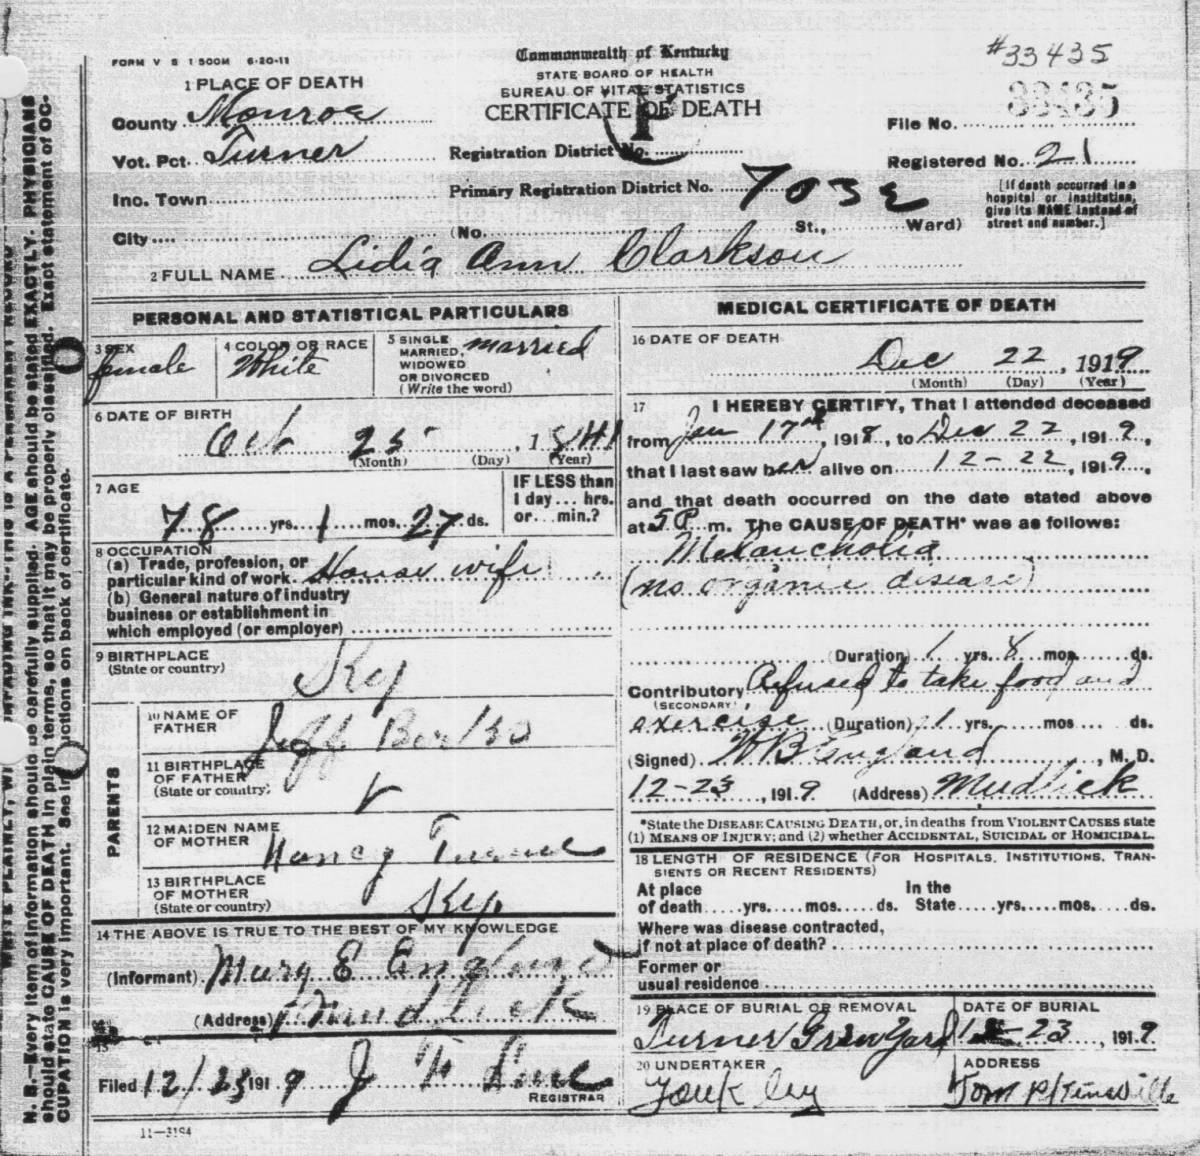 FORM V S 1 500M 6-20-11
Commonwealth of Kentucky
STATE BOARD OF HEALTH
BUREAU OF VITAL STATISTICS
CERTIFICATE OF DEATH
#33435
33435
1 PLACE OF DEATH
County Monroe
Vot. Pct. Turner
Inc. Town
City
Registration District No.
Primary Registration District No. 7032
File No.
Registered No. 21
(No. St., Ward)
[If death occurred in a
hospital or institution,
give its NAME instead of
street and number.]
2 FULL NAME Lidia Ann Clarkson
PERSONAL AND STATISTICAL PARTICULARS
3 SEX
female
4 COLOR OR RACE
White
5 SINGLE
MARRIED,
WIDOWED
OR DIVORCED
(Write the word)
married
6 DATE OF BIRTH
Oct 25, 1841
(Month) (Day) (Year)
7 AGE
78 yrs. 1 mos. 27 ds.
IF LESS than
1 day... hrs.
or... min.?
8 OCCUPATION
(a) Trade, profession, or
particular kind of work. House wife
(b) General nature of industry
business or establishment in
which employed (or employer)
9 BIRTHPLACE
(State or country)
Ky
PARENTS
10 NAME OF
FATHER
Jeff
11 BIRTHPLACE
OF FATHER
(State or country)
12 MAIDEN NAME
OF MOTHER
Nancy Turner
13 BIRTHPLACE
OF MOTHER
(State or country)
Ky.
14 THE ABOVE IS TRUE TO THE BEST OF MY KNOWLEDGE
(Informant) Mary E England
(Address) Mud Lick
15
Filed 12/23 1919 J F
REGISTRAR
11-3194
MEDICAL CERTIFICATE OF DEATH
16 DATE OF DEATH
Dec 22, 1919
(Month) (Day) (Year)
17 I HEREBY CERTIFY, That I attended deceased
from Jan 17th, 1918, to Dec 22, 1919,
that I last saw her alive on 12-22, 1919,
and that death occurred on the date stated above
at 5 P m. The CAUSE OF DEATH* was as follows:
Melancholia
(no organic disease)
(Duration) 1 yrs. 8 mos. ds.
Contributory Refused to take food and
(SECONDARY)
exercise (Duration) 1 yrs. mos. ds.
(Signed) W B England, M. D.
12-23, 1919 (Address) Mudlick
*State the DISEASE CAUSING DEATH, or, in deaths from VIOLENT CAUSES state
(1) MEANS OF INJURY; and (2) whether ACCIDENTAL, SUICIDAL or HOMICIDAL.
18 LENGTH OF RESIDENCE (FOR HOSPITALS, INSTITUTIONS, TRAN-
SIENTS OR RECENT RESIDENTS)
At place In the
of death.....yrs.....mos.....ds. State.....yrs.....mos.....ds.
Where was disease contracted,
if not at place of death?
Former or
usual residence
19 PLACE OF BURIAL OR REMOVAL
Turner Grave Yard
DATE OF BURIAL
12-23, 1919
20 UNDERTAKER
ADDRESS
Tompkinsville
N. B.—Every item of information should be carefully supplied. AGE should be stated EXACTLY. PHYSICIANS
should state CAUSE OF DEATH in plain terms, so that it may be properly classified. Exact statement of OC-
CUPATION is very important. See instructions on back of certificate.